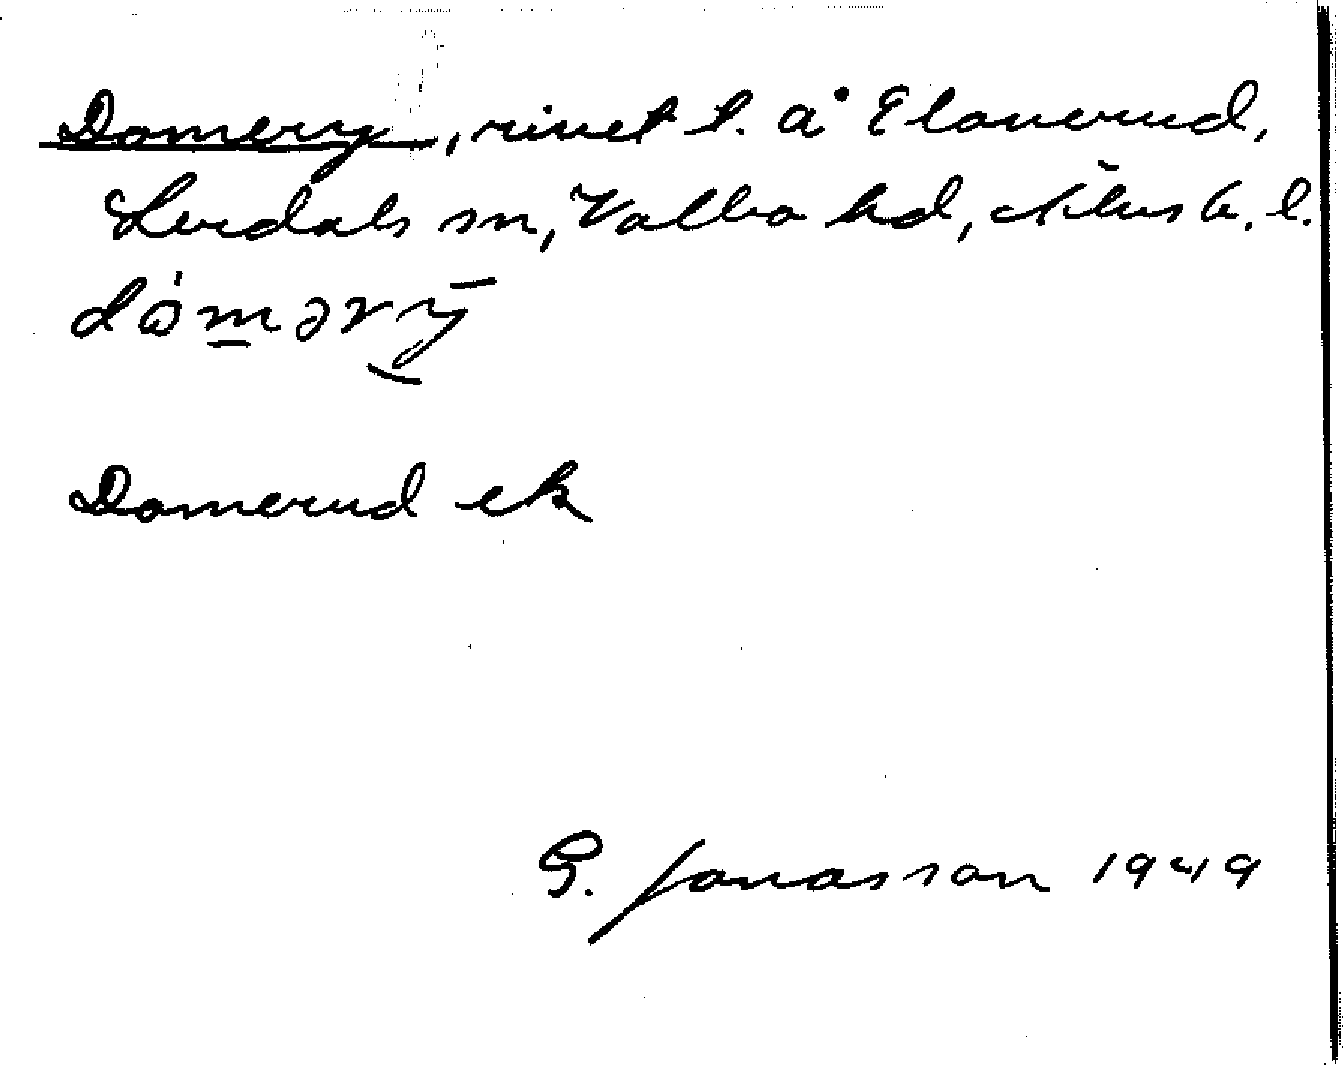 Domery, rivet t. å Eloverud,
Lerdals sn, Valbo hd, Älvsb. l.
dȯmərȳ
Domerud ek
G. Jonasson 1949